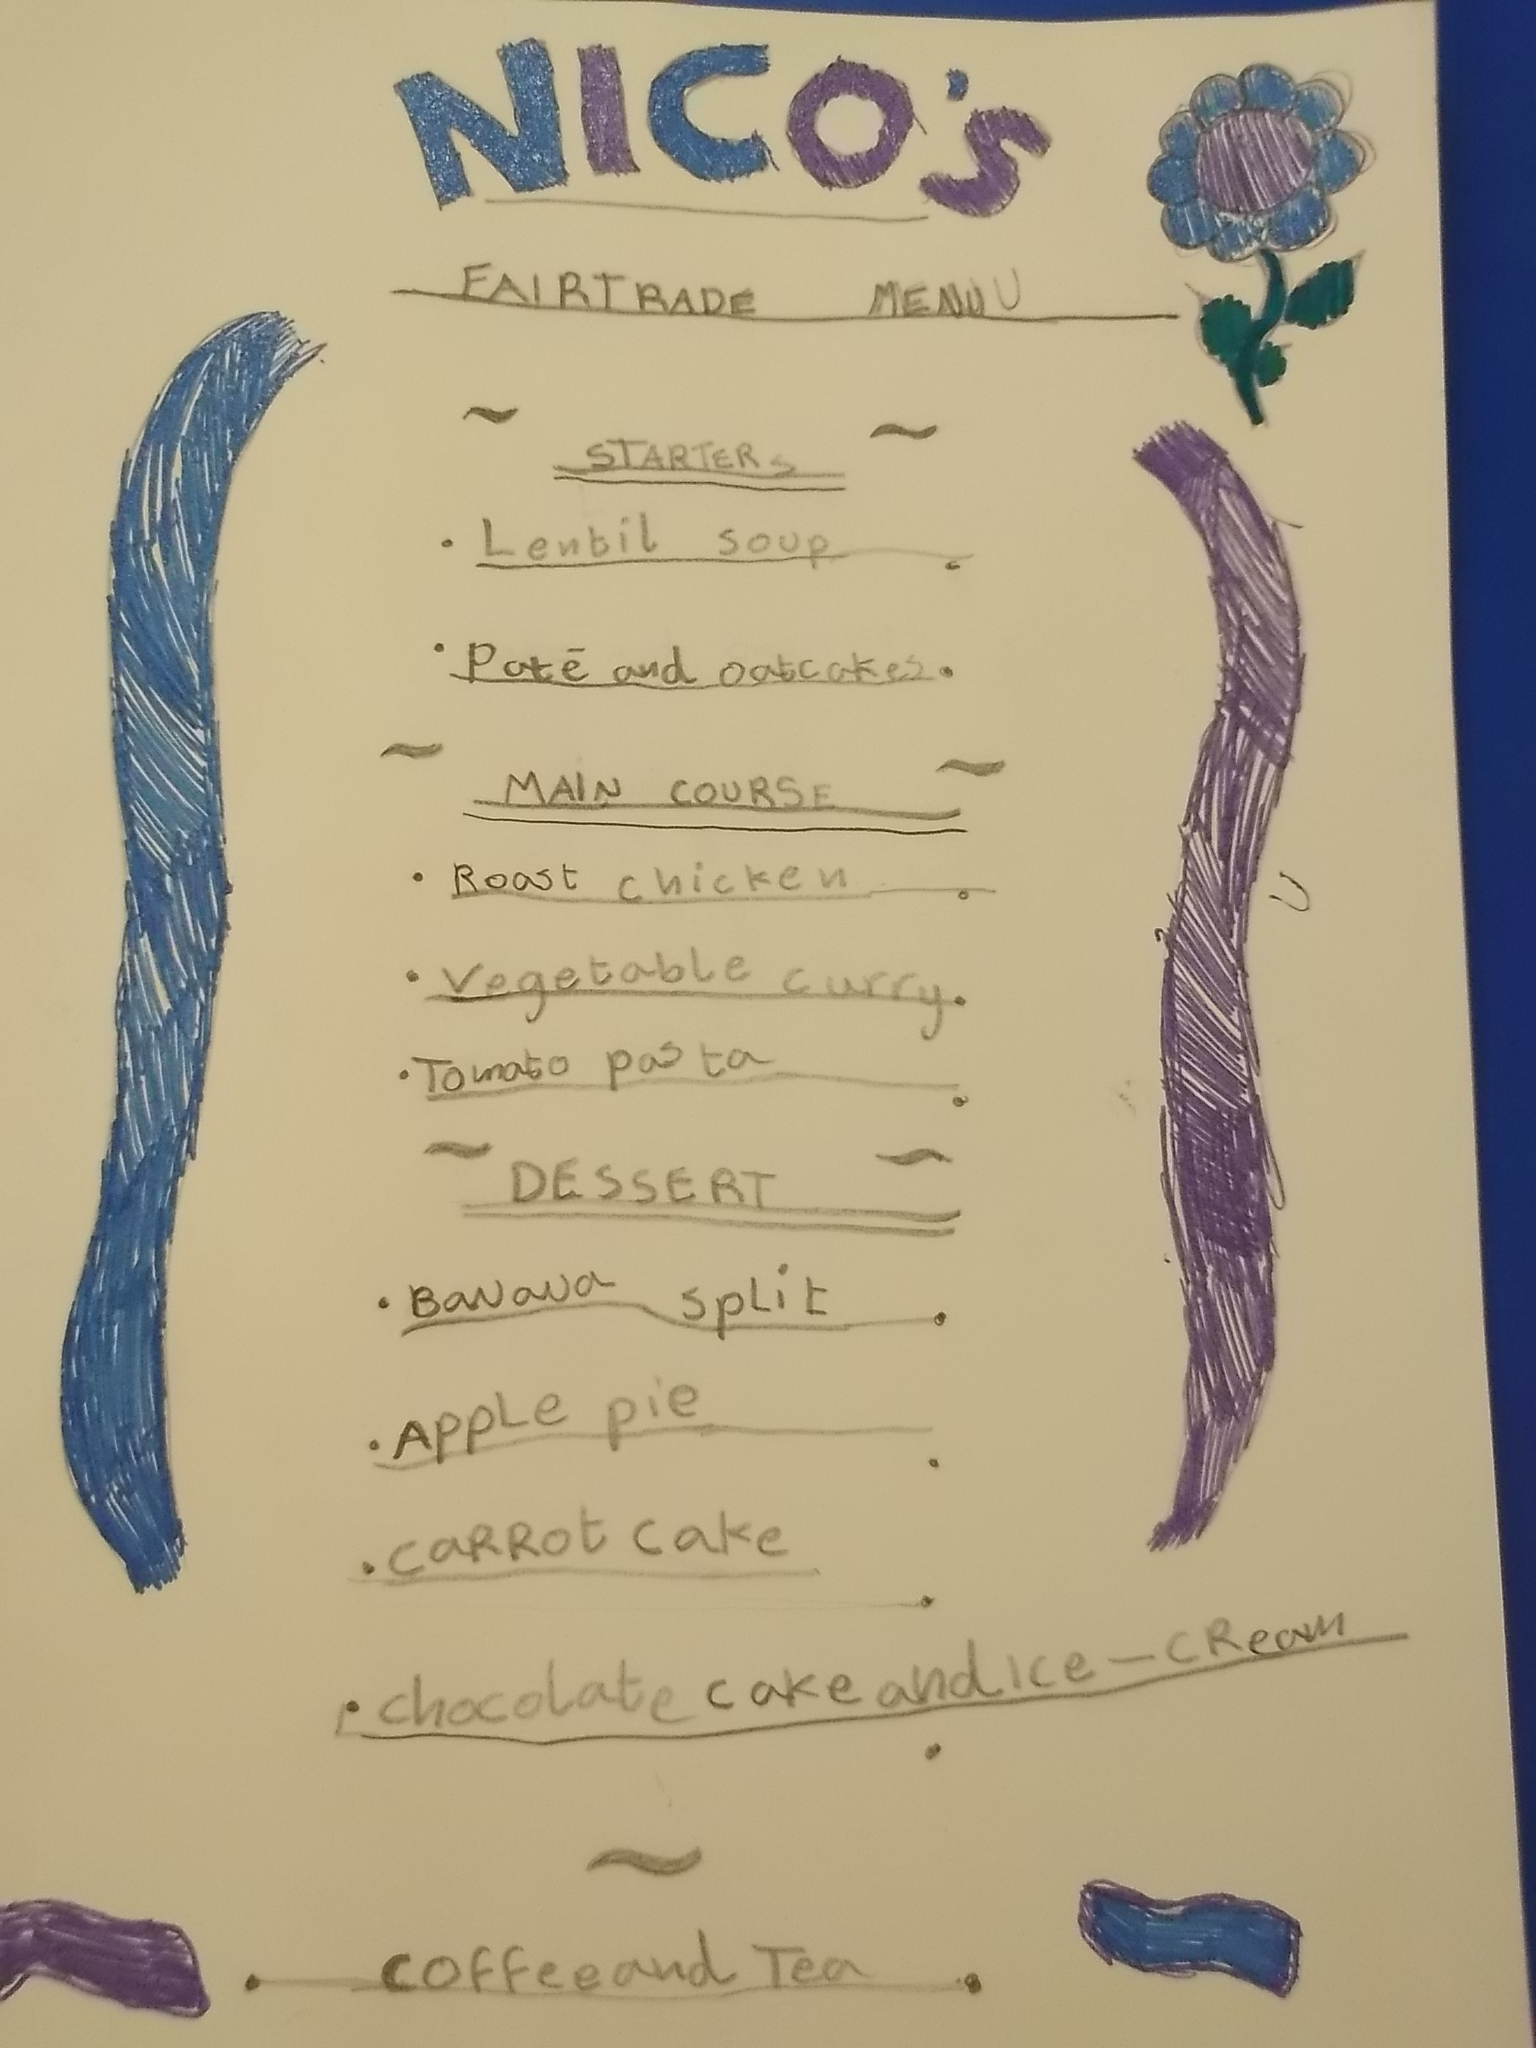 NICO's
FAIRTRADE MENU
~ STARTERS ~
• Lentil soup •
• Patē and oatcakes •
~ MAIN COURSE ~
• Roast chicken •
• Vegetable curry •
• Tomato pasta •
~ DESSERT ~
• Banana split •
• Apple pie •
• CARROt cake •
• chocolate cake and ice-cream •
~
• Coffee and Tea •